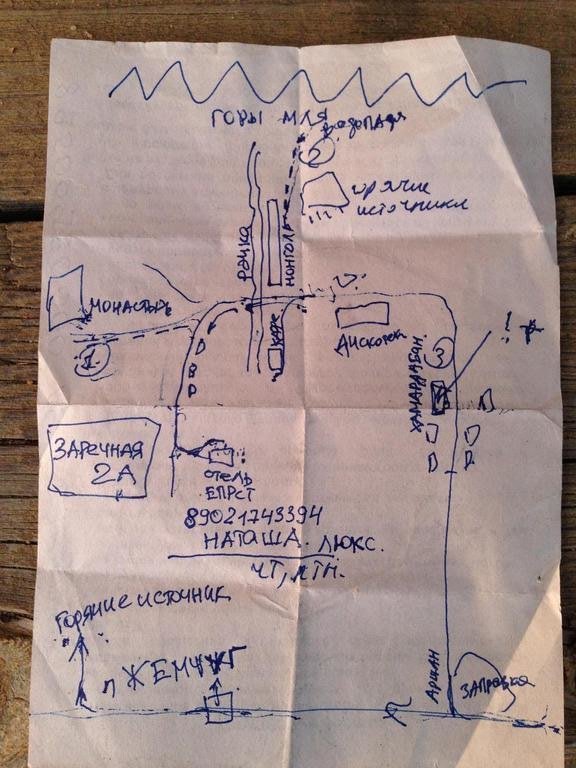 ГОРЫ МЛЯ
водопадя
2
горячие
источники
РЕЧКА
МОНГОЛЫ
МОНАСТЫРЬ
1.
КАФЕ
ДИСКОТЕК
ХАМАРДАБАН.
3
!
ЗАРЕЧНАЯ
2А
ОТЕЛЬ
ЕПРСТ
89021743394
НАТАША. ЛЮКС.
ЧТ, ПТН.
ГОРЯЧИЕ ИСТОЧНИК
П ЖЕМЧУГ
АРШАН
ЗАПРАВКА